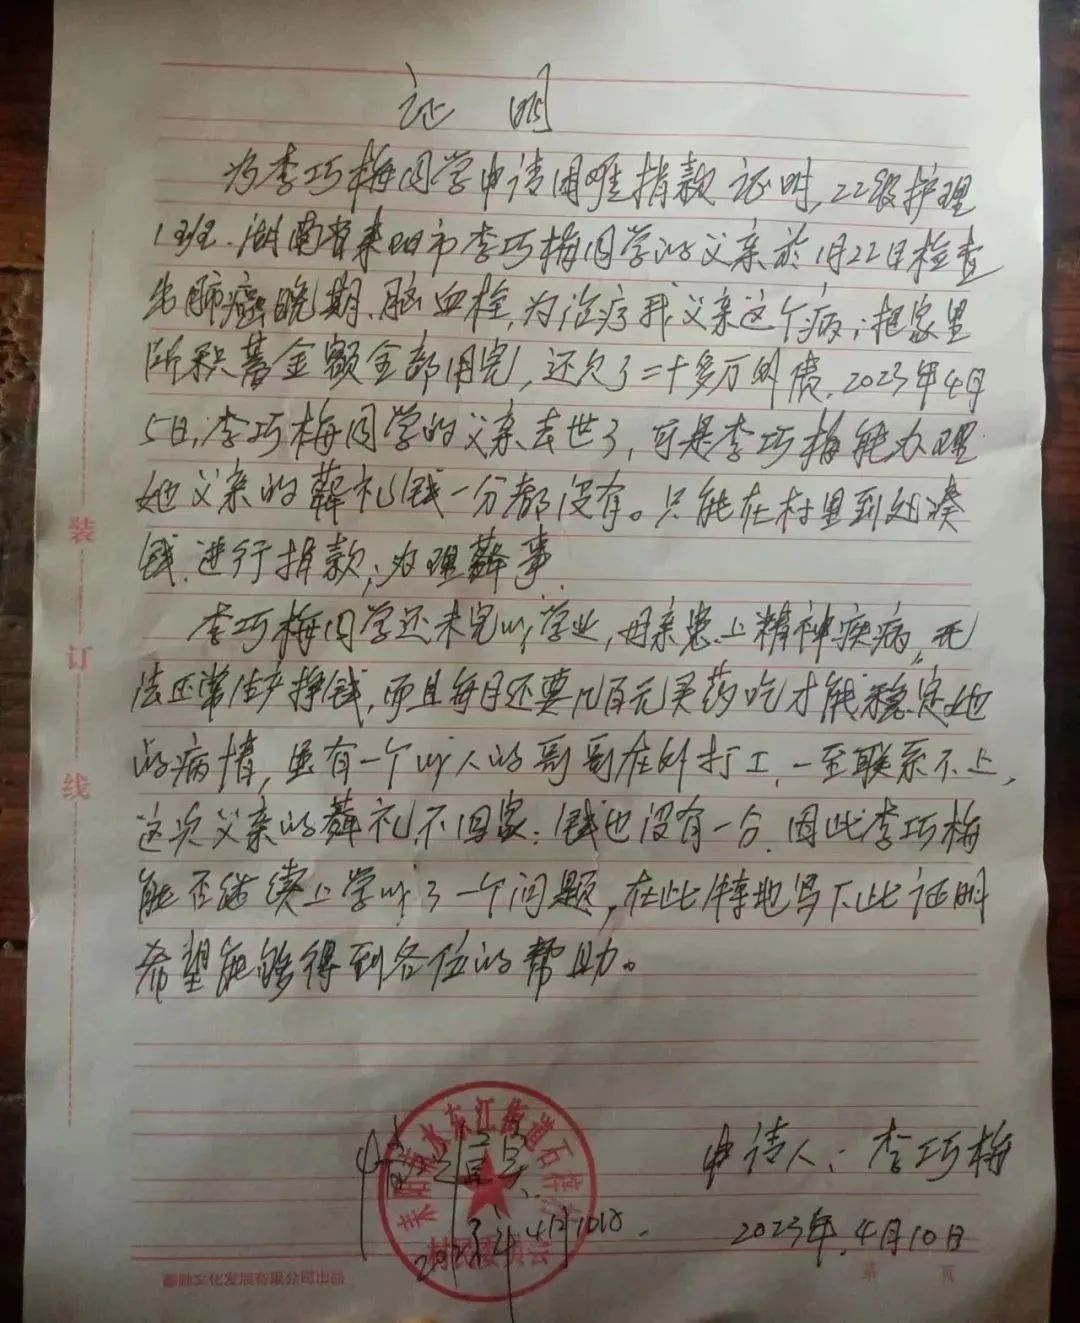 证明
为李巧梅同学申请困难捐款证明,22级护理
1班.湖南省耒阳市李巧梅同学的父亲於1月22日检查
出肺癌晚期、脑血栓,为治疗我父亲这个病;把家里
所积蓄金额全部用完,还欠了二十多万外债.2023年4月
5日,李巧梅同学的父亲去世了,可是李巧梅能办理
她父亲的葬礼钱一分都没有。只能在村里到处凑
钱.进行捐款;办理葬事.
李巧梅同学还未完成学业,母亲患上精神疾病,无
法正常生产挣钱,而且每月还要几百元买药吃才能稳定她
的病情,虽有一个成人的哥哥在外打工,一至联系不上,
这次父亲的葬礼不回家.钱也没有一分.因此李巧梅
能否继续上学成了一个问题,在此特地写下此证明
希望能够得到各位的帮助。
情况属实
2023年4月10日.
申请人:李巧梅
2023年.4月10日
水东江街道石
村民委员会
装
订
线
文化发展有限公司出品
第 页